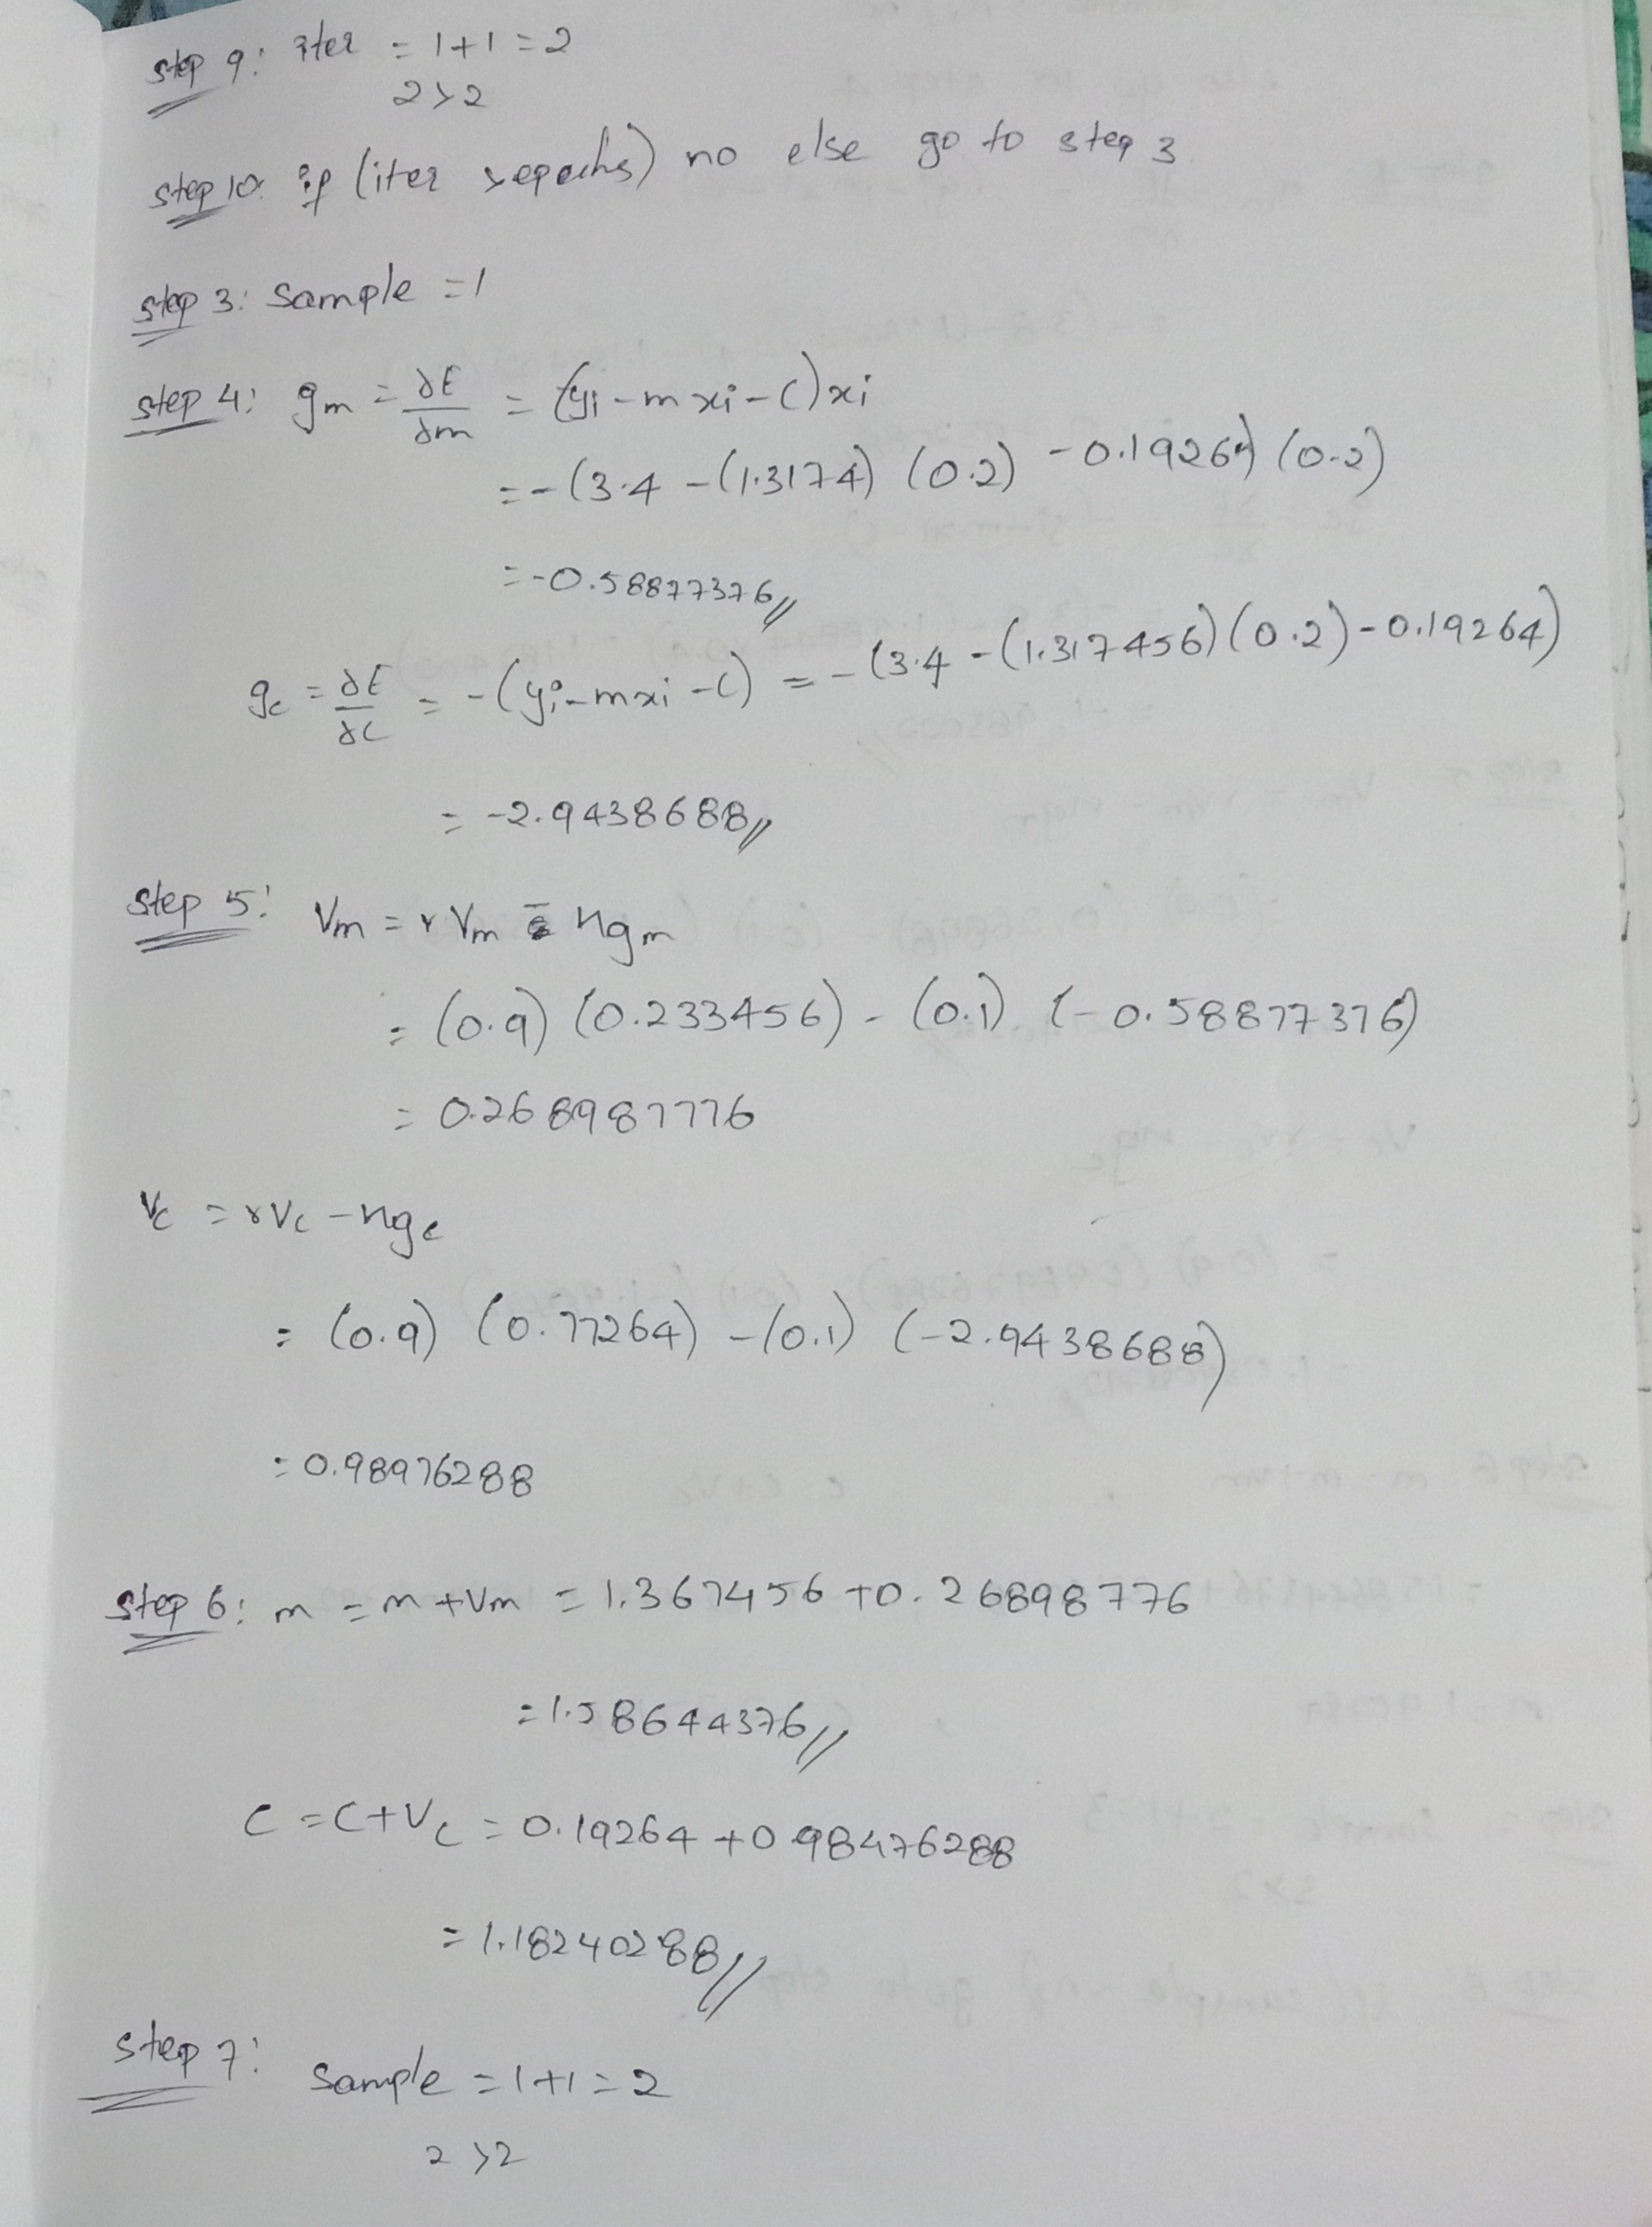 step 9: iter = 1+1 = 2
2>2
step 10: if (iter >epochs) no else go to step 3
step 3: sample = 1
step 4: gm = ∂E/∂m = -(yi - m xi - c) xi
= -(3.4 - (1.3174) (0.2) - 0.19264) (0.2)
= -0.58877376//
gc = ∂E/∂c = -(yi - mxi - c) = -(3.4 - (1.317456)(0.2) - 0.19264)
= -2.9438688//
step 5: Vm = γ Vm - ηgm
= (0.9) (0.233456) - (0.1) (-0.58877376)
= 0.268987776
Vc = γVc - ηgc
= (0.9) (0.77264) - (0.1) (-2.9438688)
= 0.98976288
step 6: m = m + Vm = 1.367456 + 0.26898776
= 1.58644376//
c = c + Vc = 0.19264 + 0.98476288
= 1.18240288//
step 7: sample = 1+1 = 2
2 >2